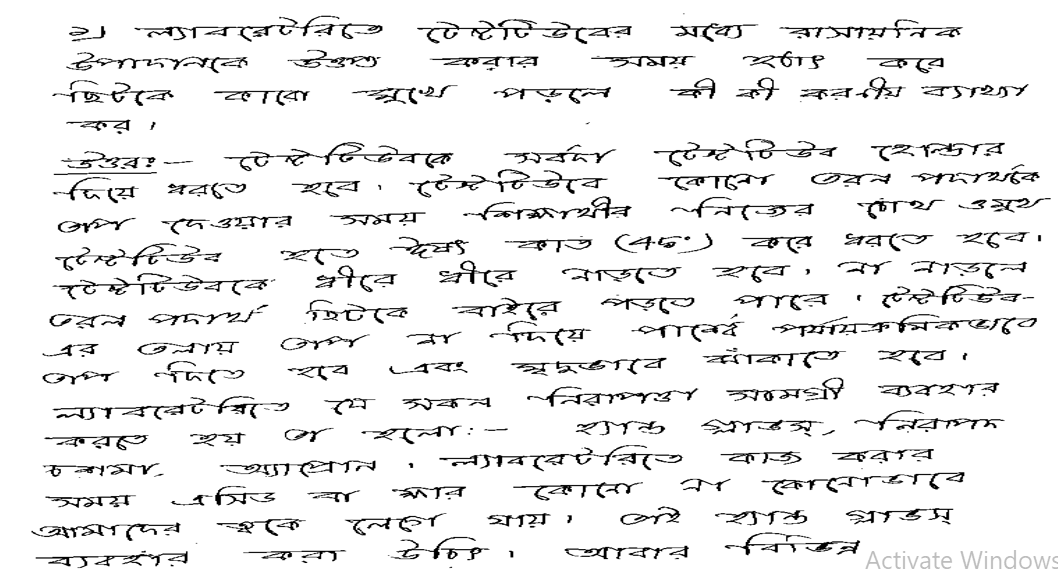 ২। ল্যাবরেটরিতে টেস্টটিউবের মধ্যে রাসায়নিক
উপাদানকে উত্তপ্ত করার সময় হঠাৎ করে
ছিটকে কারো মুখে পড়লে কী কী করণীয় ব্যাখ্যা
কর।
উত্তরঃ- টেস্টটিউবকে সর্বদা টেস্টটিউব হোল্ডার
দিয়ে ধরতে হবে। টেস্টটিউবে কোনো তরল পদার্থকে
তাপ দেওয়ার সময় শিক্ষার্থীর নিজের চোখ ও মুখ
টেস্টটিউব হতে ঈষৎ কাত (45°) করে ধরতে হবে।
টেস্টটিউবকে ধীরে ধীরে নাড়তে হবে। না নাড়লে
তরল পদার্থ ছিটকে বাইরে পড়তে পারে। টেস্টটিউব-
এর তলায় তাপ না দিয়ে পার্শ্বে পর্যায়ক্রমিকভাবে
তাপ দিতে হবে এবং মৃদুভাবে ঝাঁকাতে হবে।
ল্যাবরেটরিতে যে সকল নিরাপত্তা সামগ্রী ব্যবহার
করতে হয় তা হলো:- হ্যান্ড গ্লাভস্, নিরাপদ
চশমা, অ্যাপ্রোন। ল্যাবরেটরিতে কাজ করার
সময় এসিড বা ক্ষার কোনো না কোনোভাবে
আমাদের ত্বকে লেগে যায়। তাই হ্যান্ড গ্লাভস্
ব্যবহার করা উচিৎ। আবার বিভিন্ন
Activate Windows